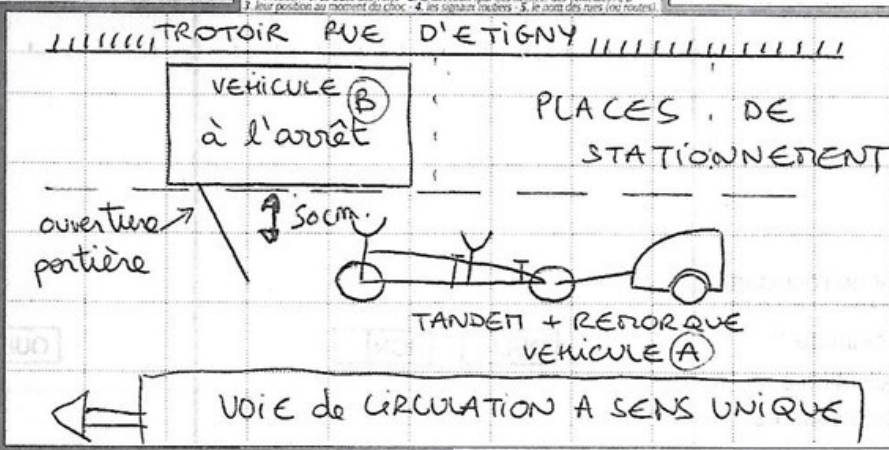 3. leur position au moment du choc - 4. les signaux routiers - 5. le nom des rues (ou routes).
TROTOIR RUE D'ETIGNY
VEHICULE B
à l'arrêt
PLACES . DE
STATIONNEMENT
ouverture
portière
50cm.
TANDEM + REMORQUE
VEHICULE A
VOIE de CIRCULATION A SENS UNIQUE